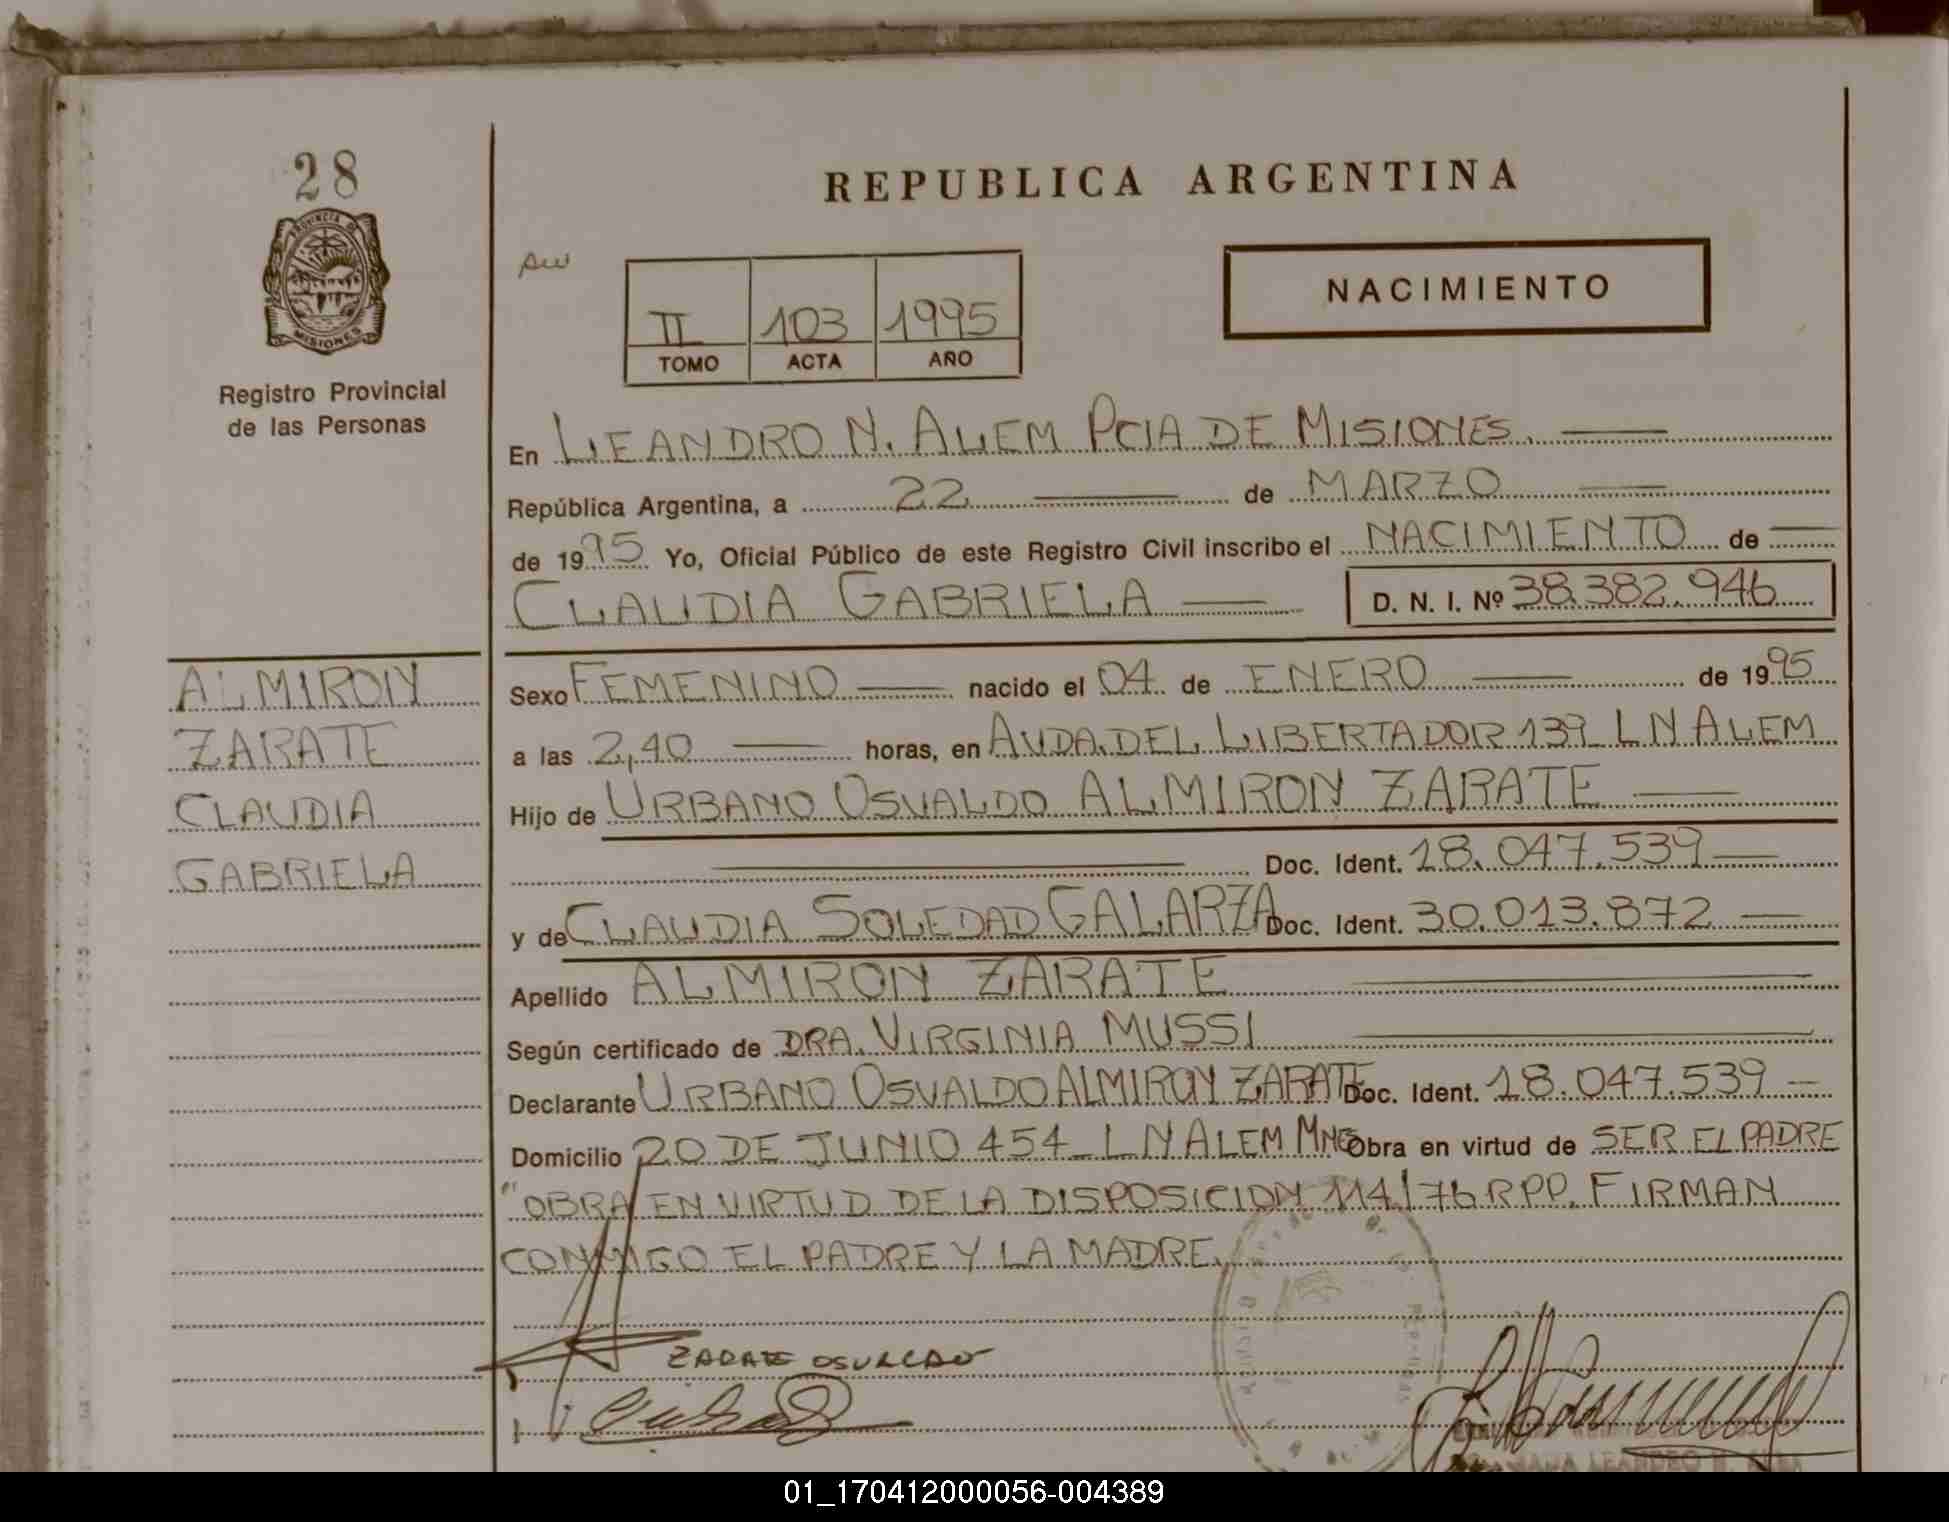 28
REPUBLICA ARGENTINA
PROVINCIA DE
MISIONES
Registro Provincial
de las Personas
II 103 1995
TOMO ACTA AÑO
NACIMIENTO
En LEANDRO N. ALEM PCIA DE MISIONES.
República Argentina, a 22 de MARZO
de 1995 Yo, Oficial Público de este Registro Civil inscribo el NACIMIENTO de
CLAUDIA GABRIELA D. N. I. Nº 38.382.946
ALMIRON
ZARATE
CLAUDIA
GABRIELA
Sexo FEMENINO nacido el 04 de ENERO de 1995
a las 2,40 horas, en AVDA. DEL LIBERTADOR 139 LN ALEM
Hijo de URBANO OSVALDO ALMIRON ZARATE
Doc. Ident. 18.047.539
y de CLAUDIA SOLEDAD GALARZA Doc. Ident. 30.013.872
Apellido ALMIRON ZARATE
Según certificado de DRA. VIRGINIA MUSSI
Declarante URBANO OSVALDO ALMIRON ZARATE Doc. Ident. 18.047.539
Domicilio 20 DE JUNIO 454 LN ALEM Mnes Obra en virtud de SER EL PADRE
"OBRA EN VIRTUD DE LA DISPOSICION 114/76 RPP. FIRMAN
CONMIGO EL PADRE Y LA MADRE.
ZARATE OSVALDO
01_170412000056-004389